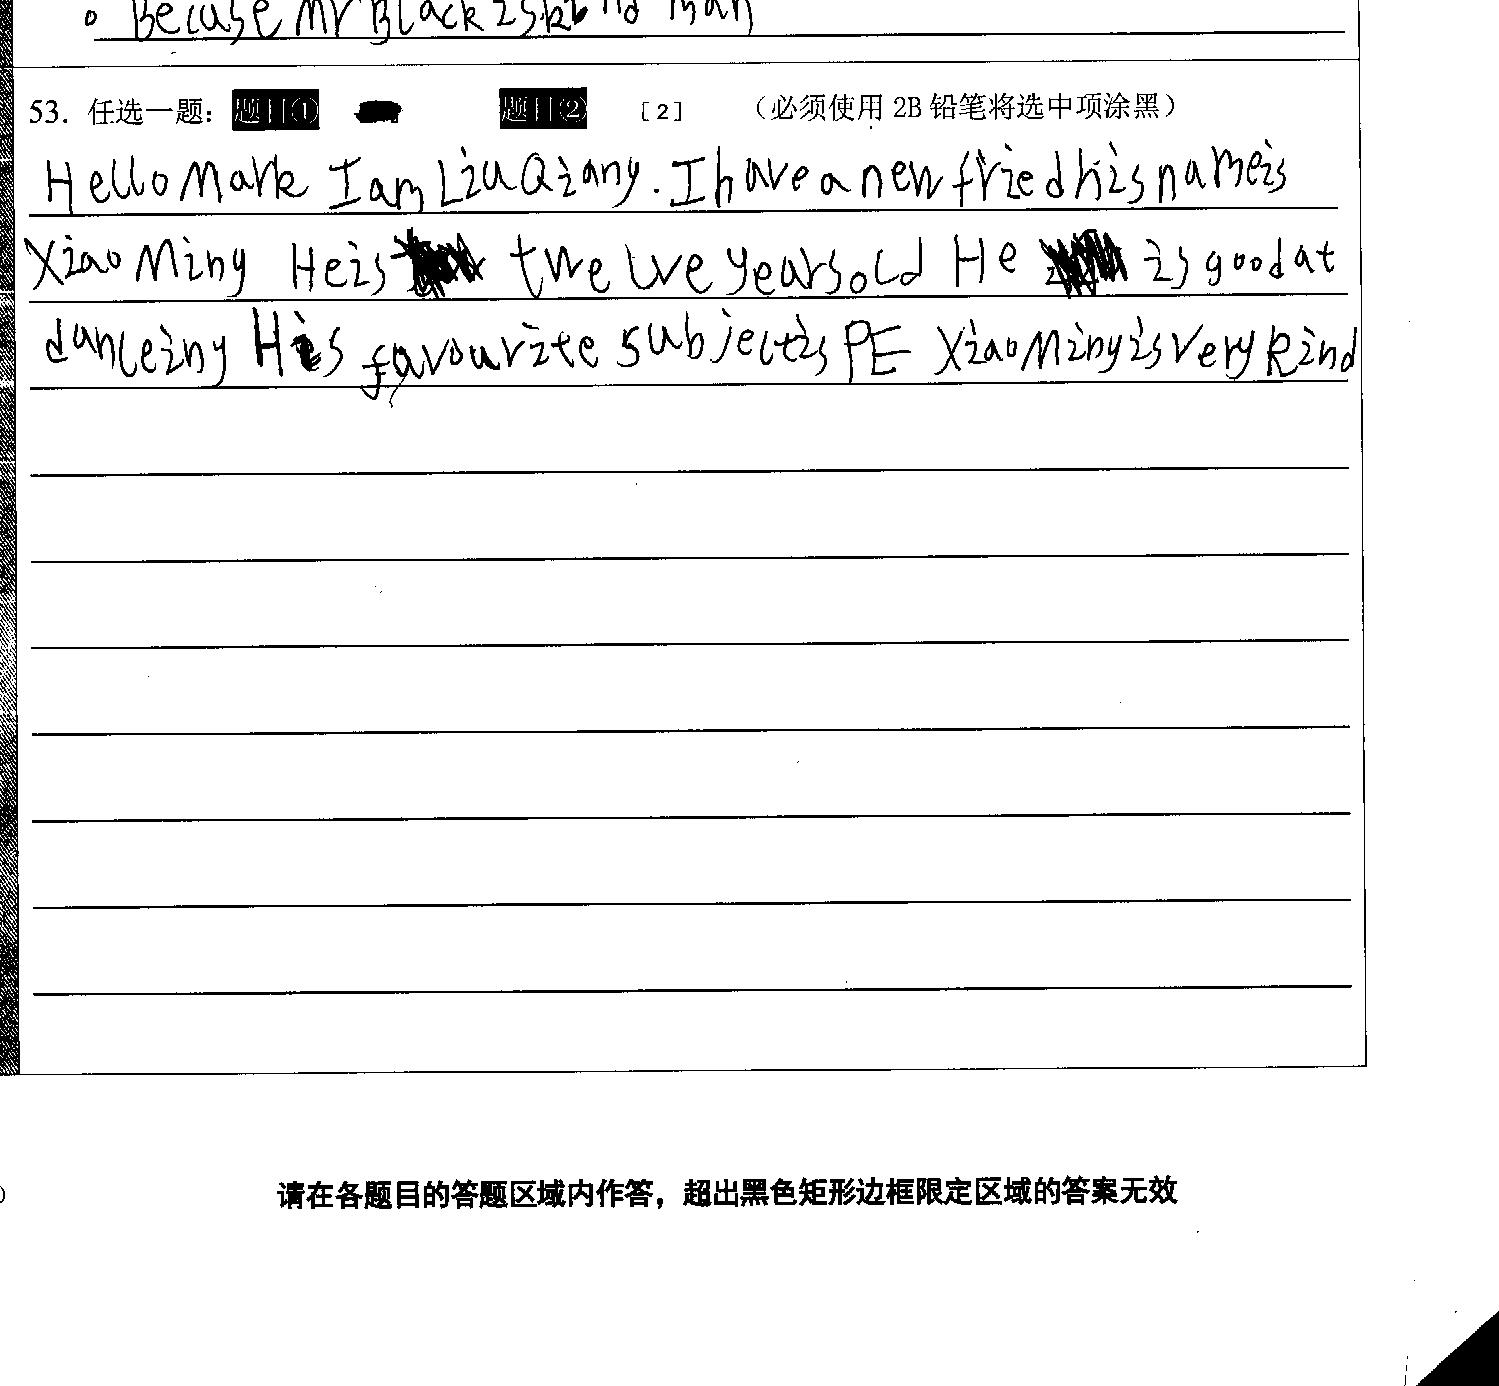 Becuse Mr Black is kind man
53. 任选一题： 题目① 题目② [2] （必须使用 2B 铅笔将选中项涂黑）
Hello Mark I am Liu Qiang. I have a new fried his name is
Xiao Ming He is twe lve years old He is good at
danceing His favourite subject is PE Xiao Ming is very kind
请在各题目的答题区域内作答，超出黑色矩形边框限定区域的答案无效